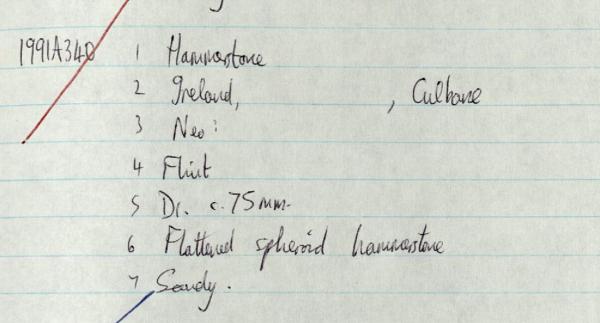 1991A340 1 Hammerstone
2 Ireland, , Culbane
3 Neo:
4 Flint
5 Di. c. 75mm.
6 Flattened spheroid hammerstone
7 Sandy.